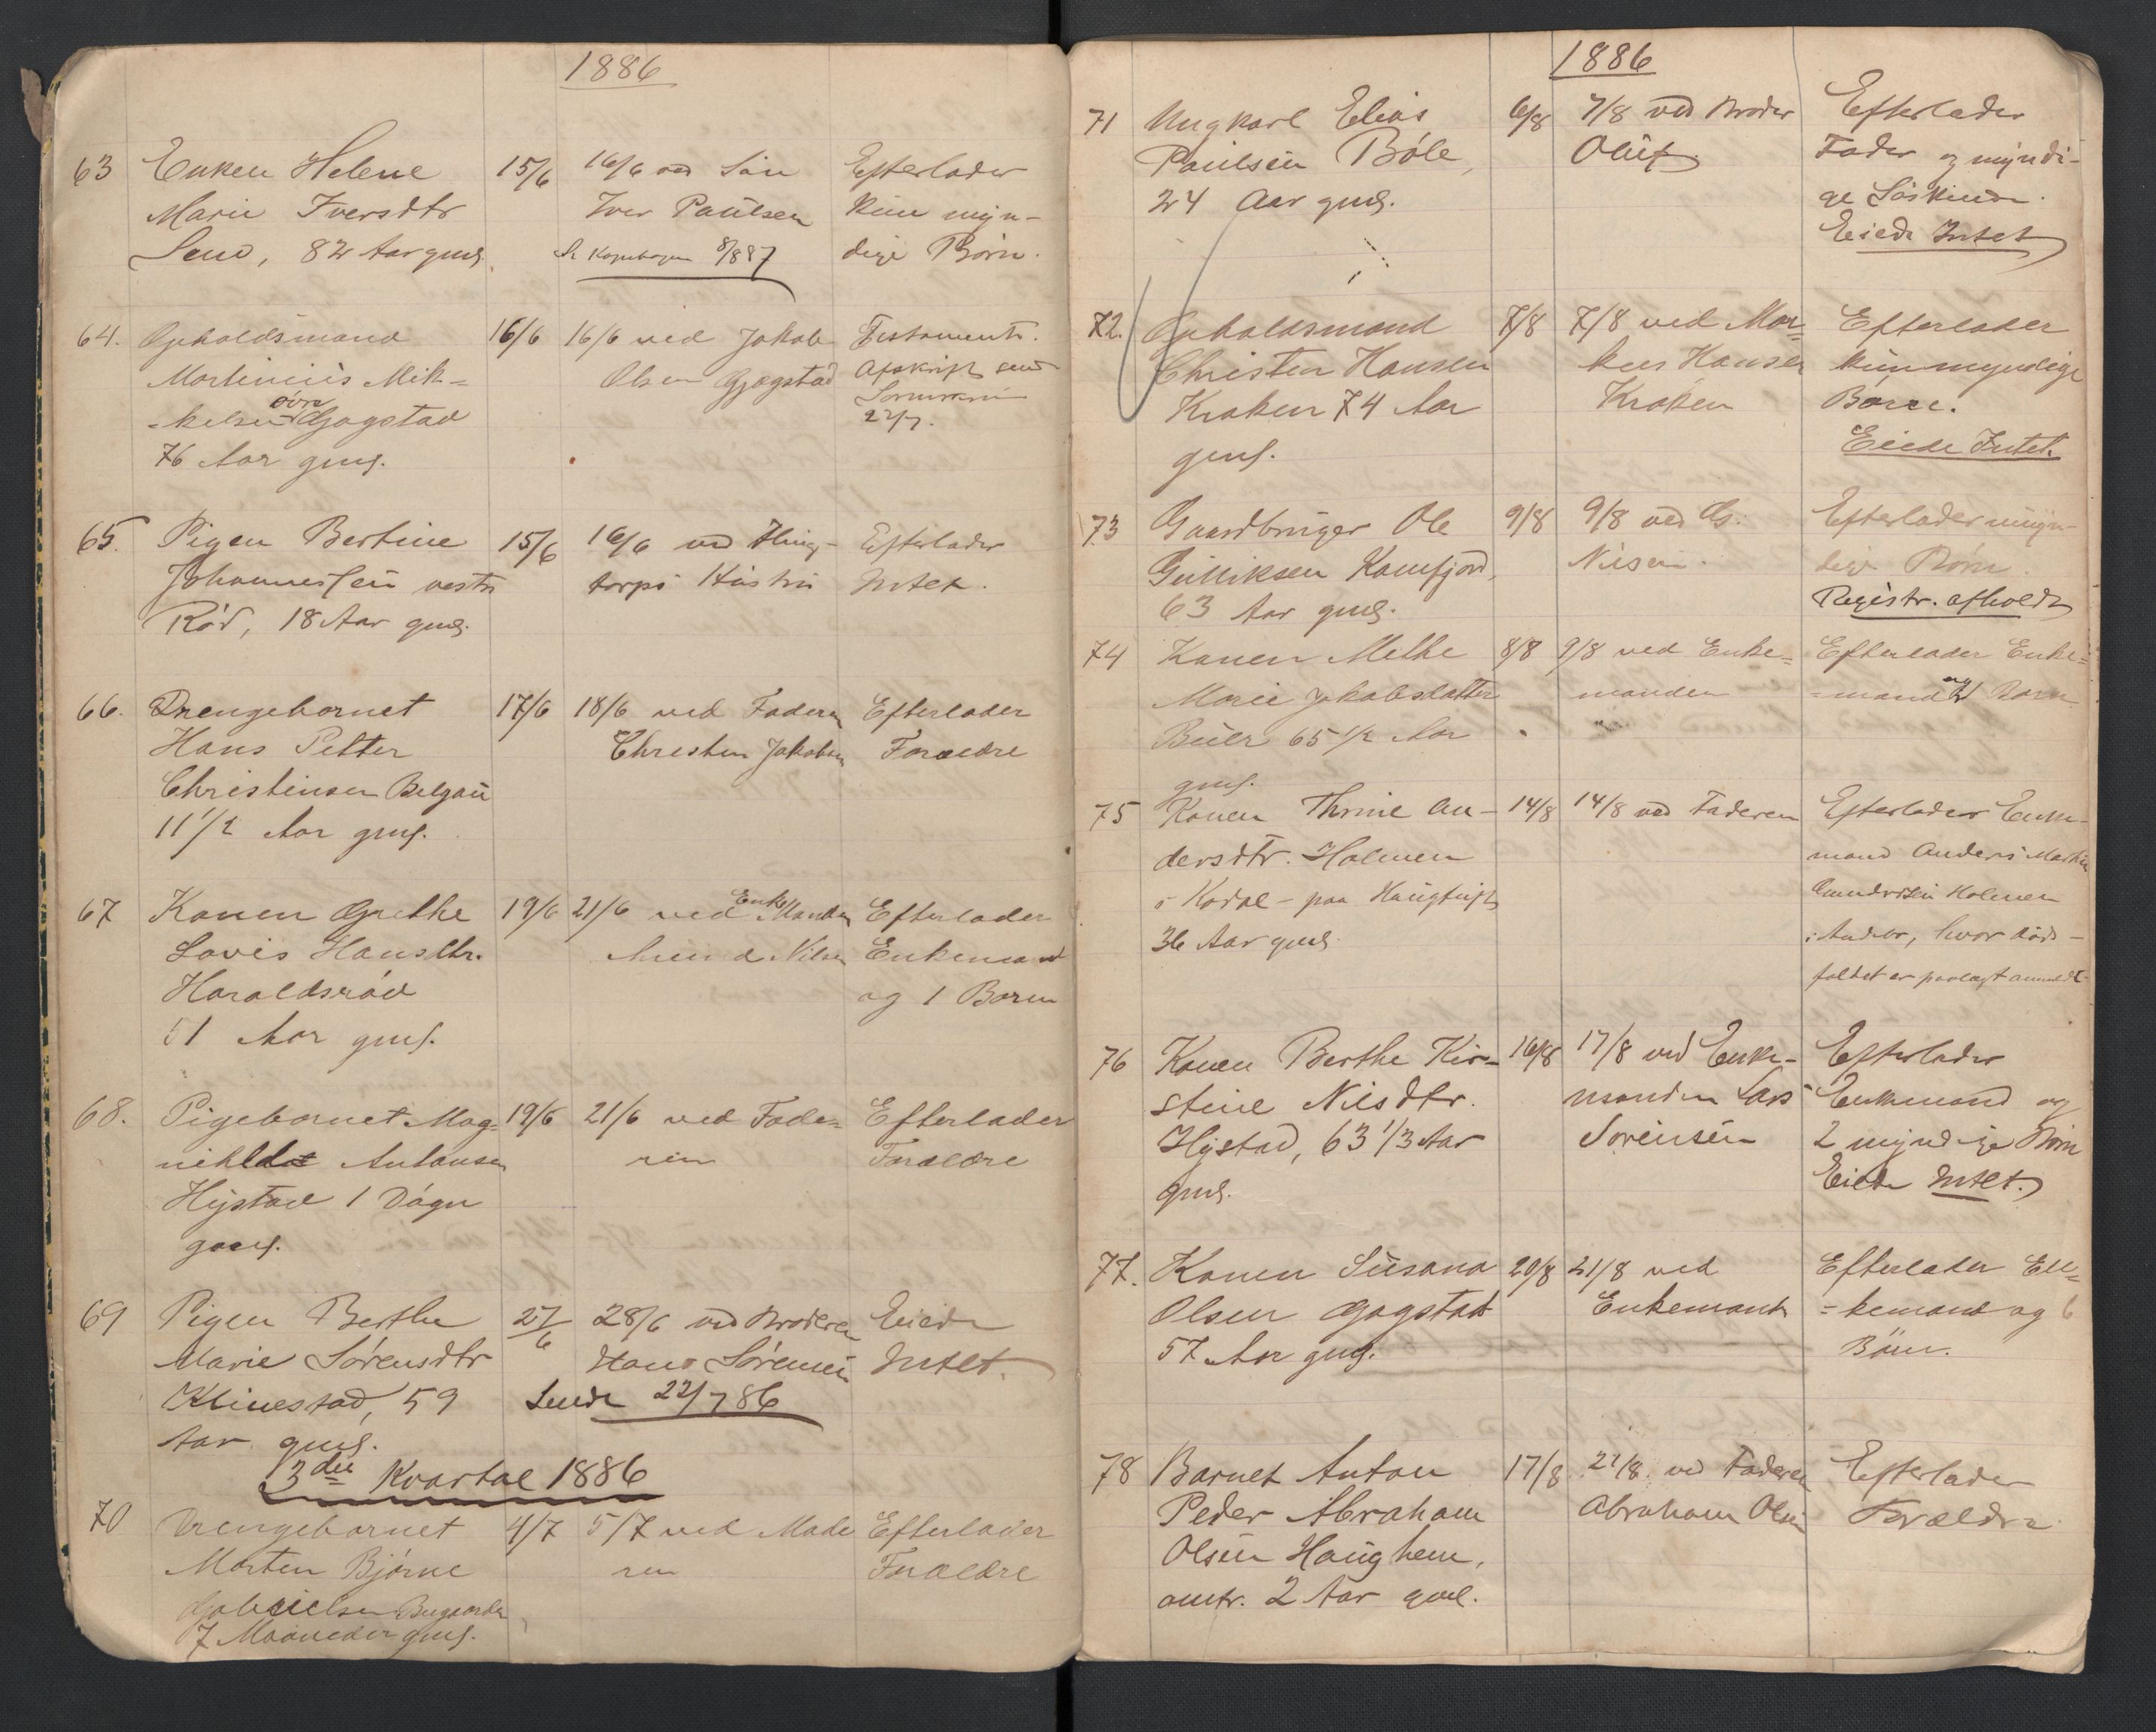 1886
63 Enken Helene 15/6 16/6 ved Søn Efterlader
Marie Iversdtr Iver Paulsen kun myn-
Send, 82 Aar gml. 8/8 87 dige Børn.
64. Opholdsmand 16/6 16/6 ved Jakob Testament.
Martinius Mik= Olsen Gjogstad Afskrift send
-kelsen øvre Gjogstad
76 Aar gml. 22/7.
65. Pigen Bertine 15/6 16/6 ved Efterlader
Johannessen vestre torps Hustru Intet.
Rød, 18 Aar gml.
66. Drengebarnet 17/6 18/6 ved Faderen Efterlader
Hans Petter Christen Jakobsen Forældre
Christensen Belgau
11 1/2 Aar gml.
67 Konen Grethe 19/6 21/6 ved Enkemanden Efterlader
Lovis Hansdtr. Nilsen Enkemand
Haraldsrød og 1 Barn
51 Aar gml.
68. Pigebarnet Mag= 19/6 21/6 ved Fade= Efterlader
nihlde Antonsen ren Forældre
Hystad 1 Døgn
gaml.
69 Pigen Berthe 27/6 28/6 ved Broderen Eiede
Marie Sørensdtr Hans Sørensen Intet.
Klinestad, 59 Sendt 22/7 86
Aar gml.
3die Kvartal 1886
70 Drengebarnet 4/7 5/7 ved Mode Efterlader
Morten Bjørne ren Forældre
Gabrielsen Bugaarden
7 Maaneder gml.
1886
71 Ungkarl Elias 6/8 7/8 ved Broder Efterlader
Paulsen Bøle, Oluf Fader og myndi-
24 Aar gml. ge Søskende.
Eiede Intet
72. Opholdsmand 7/8 7/8 ved Mar= Efterlader
Christen Hansen kus Hansen kun myndige
Kraken 74 Aar Kraken Børn.
gml. Eiede Intet.
73 Gaardbruger Ole 9/8 9/8 ved Efterlader myn-
Gulliksen Kamfjord, Nilsen. dige Børn
63 Aar gml. Registr. afholdt
74 Konen Methe 8/8 9/8 ved Enke= Efterlader Enke=
Marie Jakobsdatter manden =mand og Børn
Buer 65 1/2 Aar
gml.
75 Konen Thrine An- 14/8 14/8 ved Faderen Efterlader Enke-
dersdtr. Holmen mand Anders Martin
i Kodal - paa Holmen
36 Aar gml. i Andebu, hvor døds-
faldet er paalagt anmeldt
76 Konen Berthe Kir- 16/8 17/8 ved Enke- Efterlader
stine Nilsdtr. manden Lars Enkemand og
Hystad, 63 1/3 Aar Sørensen 2 myndige Børn
gml. Eiede Intet.
77. Konen Susana 20/8 21/8 ved Efterlader En=
Olsen Gogstad Enkemand =kemand og 6
57 Aar gml. Børn.
78 Barnet Anton 17/8 21/8 ved Faderen Efterlader
Peder Abraham Abraham Olsen Forældre
Olsen Haughem,
omtr. 2 Aar gml.